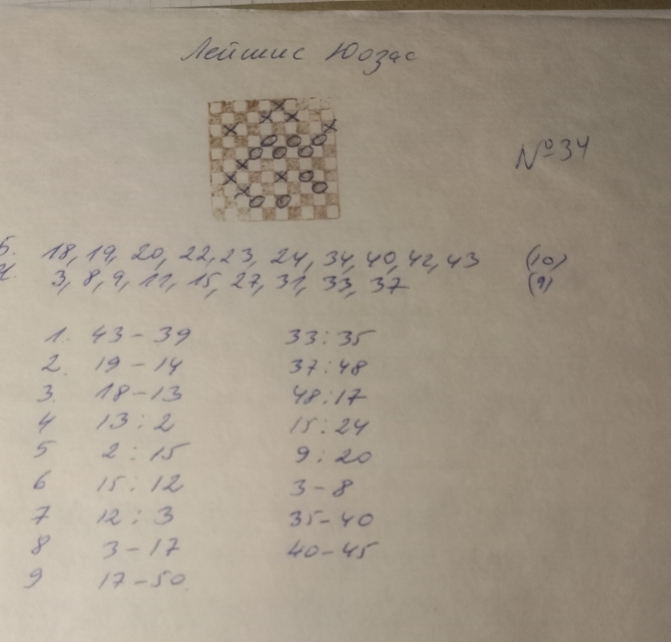 Лейшис Юозас
№ 34
Б. 18, 19, 20, 22, 23, 24, 34, 40, 42, 43 (10)
Ч. 3, 8, 9, 11, 15, 27, 31, 33, 37 (9)
1. 43-39 33:35
2. 19-14 37:48
3. 18-13 48:17
4 13:2 15:24
5 2:15 9:20
6 15:12 3-8
7 12:3 35-40
8 3-17 40-45
9 17-50